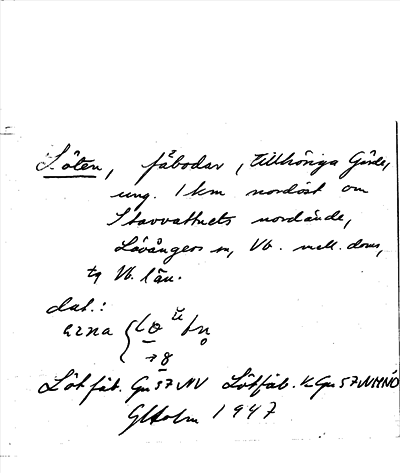 Löten, fäbodar, tillhöriga Gärde,
ung. 1 km nordöst om
Stavvattnets nordände,
Lövångers sn, Vb. mell. doms,
tg Vb. län.
dat.:
arna
Lötfäb. Gu 57 NV Lötfäb. k Gu 57 NHNÖ
GHolm 1947